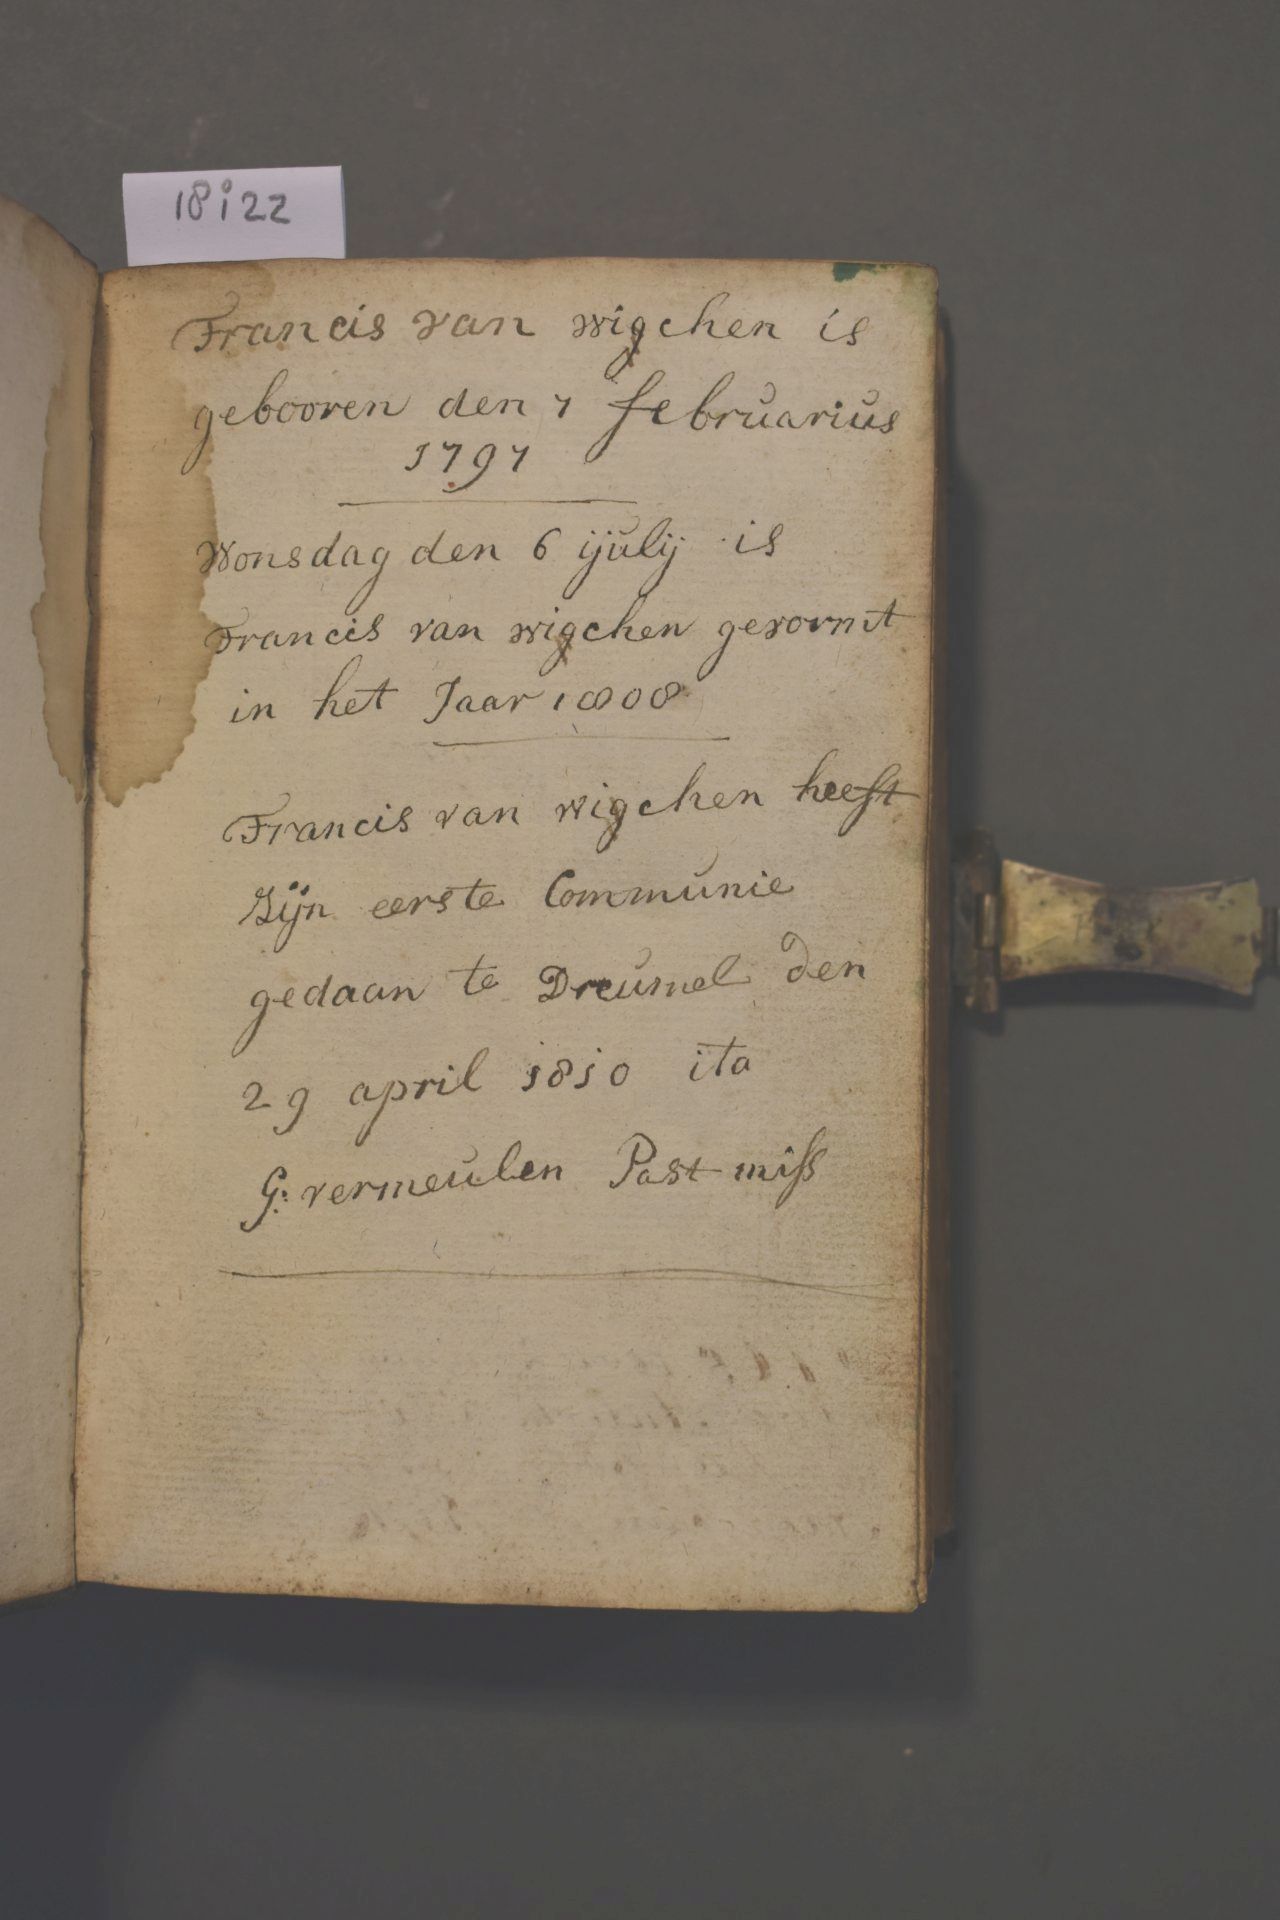 18i22
Francis van wigchen is
gebooren den 7 februarius
1797
Wonsdag den 6 ijulij is
Francis van wigchen gevormt
in het Jaar 1808
Francis van wigchen heeft
Zijn eerste Communie
gedaan te Dreumel den
29 april 1810 ita
G: vermeulen Past miss